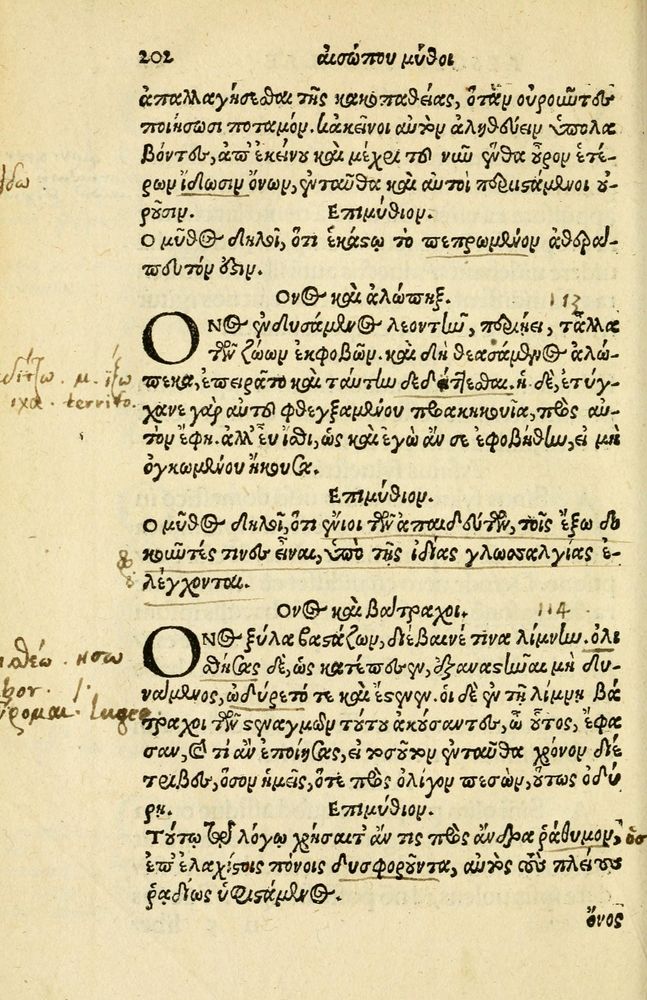 202 αἰσώπου μῦθοι
ἀπαλλαγήσεσθαι τῆς κακοπαθείας, ὅταν οὐροῦντες
ποιήσωσι ποταμόν. κἀκεῖνοι αὐτὸν ἀληθεύειν ὑπολα
βόντες, ἀπ' ἐκείνου καὶ μέχρι τοῦ νῦν ἔνθα οὖρον ἑτέ-
ρων ἴδωσιν ὄνων, ἐνταῦθα καὶ αὐτοὶ περιϊστάμενοι οὐ-
ροῦσιν. Ἐπιμύθιον.
Ο μῦθος δηλοῖ, ὅτι ἑκάστῳ τὸ πεπρωμένον ἀθεράπ-
πευτόν ἐστιν.
Ονος καὶ ἀλώπηξ. 113
ΟΝος ἐνδυσάμενος λεοντῆν, περιῄει, τἄλλα
τῶν ζώων ἐκφοβῶν. καὶ δὴ θεασάμενος ἀλώ-
πεκα, ἐπειρᾶτο καὶ ταύτην δεδίττεσθαι. ἡ δὲ, ἐτύγ-
χανε γὰρ αὐτοῦ φθεγξαμένου προακηκουῖα, πρὸς αὐ-
τὸν ἔφη. ἀλλ' εὖ ἴσθι, ὡς καὶ ἐγὼ ἄν σε ἐφοβήθην, εἰ μὴ
ὀγκωμένου ἤκουσα.
Ἐπιμύθιον.
Ο μῦθος δηλοῖ, ὅτι ἔνιοι τῶν ἀπαιδεύτων, τοῖς ἔξω δο
κοῦντές τινες εἶναι, ὑπὸ τῆς ἰδίας γλωσσαλγίας ἐ-
λέγχονται.
Ονος καὶ βάτραχοι. 114
ΟΝος ξύλα βαστάζων, διέβαινέ τινα λίμνην. ὀλι
σθήσας δὲ, ὡς κατέπεσεν, ἐξαναστῆναι μὴ δυ-
νάμενος, ὠδύρετό τε καὶ ἔστενεν. οἱ δὲ ἐν τῇ λίμνῃ βά
τραχοι τῶν στεναγμῶν τούτου ἀκούσαντες, ὦ οὗτος, ἔφα
σαν, καὶ τί ἂν ἐποίησας, εἰ τοσοῦτον ἐνταῦθα χρόνον διέ
τριβες, ὅσον ἡμεῖς, ὅτε πρὸς ὀλίγον πεσὼν, οὕτως ὀδύ
ρῃ. Ἐπιμύθιον.
Τούτῳ τῷ λόγῳ χρήσαιτ' ἄν τις πρὸς ἄνδρα ῥᾴθυμον, ὃς
ἐπ' ἐλαχίστοις πόνοις δυσφοροῦντα, αὐτὸς τοὺς πλείους
ῥᾳδίως ὑφιστάμενος.
ὄνος
territo.
lugeo